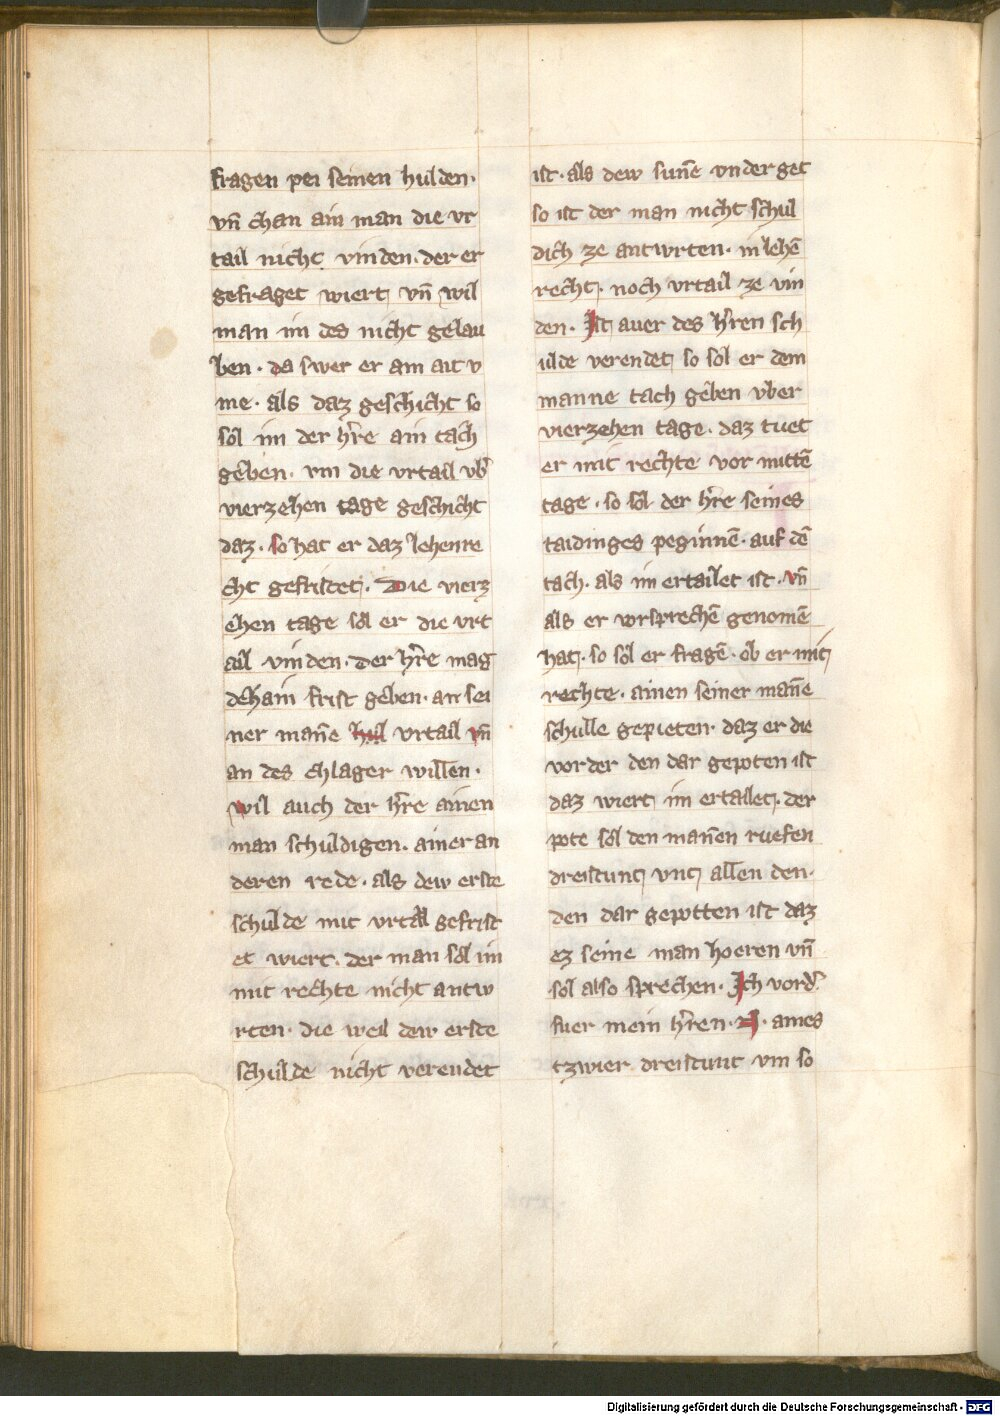 fragen pei seinen hulden·
vn̄ chan ain man die vr
tail nicht vinden. der er
gefraget wiert vn̄ wil
man im des nicht gelau
ben · da swer er am ait v
me · als daz geschicht so
sol im der hr̄e ain tach
geben · vm die vrtail vb̄
vierzehen tage geschicht
daz · so hat er daz lehenre
cht gefristet · Die vierz
ehen tage sol er die vrt
ail vinden · Der hr̄e mag
dehain frist geben · an sei
ner man̄e hul vrtail vn̄
an des chlager willen ·
wil auch der hr̄e ainen
man schuldigen · ainer an
deren rede · als dew erste
schulde mit vrtail gefrist
et wiert · der man sol im
mit rechte nicht antw
rten · die weil dew erste
schulde nicht verendet
ist · als dew sun̄e vnder get
so ist der man nicht schul
dich ze antwrten · in lehē
recht · noch vrtail ze vin
den · Ist auer des hr̄en sch
ulde verendet so sol er dem
manne tach geben vber
vierzehen tage · daz tuet
er mit rechte vor mittē
tage · so sol der hr̄e seines
taidinges peginnē · auf dē
tach · als im ertailet ist · vn̄
als er vorsprechē genomē
hat · so sol er fragē · ob er mit
rechte · ainen seiner man̄e
schulle gepieten · daz er die
vorder den dar gepoten ist
daz wiert im ertailet · der
pote sol den man̄en ruefen
dreistunt vnt allen den ·
den dar gepotten ist daz
ez seine man hoeren vn̄
sol also sprechen · Ich vord̄
fuer mein hr̄en · N · aines
tzwier dreistunt vm so
Digitalisierung gefördert durch die Deutsche Forschungsgemeinschaft - DFG